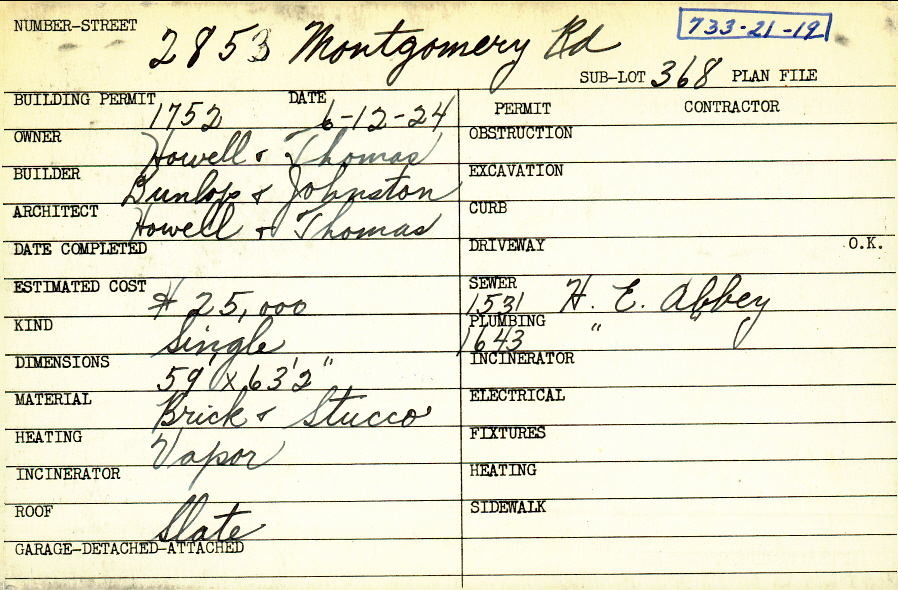 NUMBER-STREET 2853 Montgomery Rd 733-21-19
SUB-LOT 368 PLAN FILE
BUILDING PERMIT 1752 DATE 6-12-24
OWNER Howell & Thomas
BUILDER Dunlop & Johnston
ARCHITECT Howell & Thomas
DATE COMPLETED
ESTIMATED COST $25,000
KIND Single
DIMENSIONS 59' x 63'2"
MATERIAL Brick & Stucco
HEATING Vapor
INCINERATOR
ROOF Slate
GARAGE-DETACHED-ATTACHED
PERMIT CONTRACTOR
OBSTRUCTION
EXCAVATION
CURB
DRIVEWAY O.K.
SEWER 1531 H. E. Abbey
PLUMBING 1643 " "
INCINERATOR
ELECTRICAL
FIXTURES
HEATING
SIDEWALK